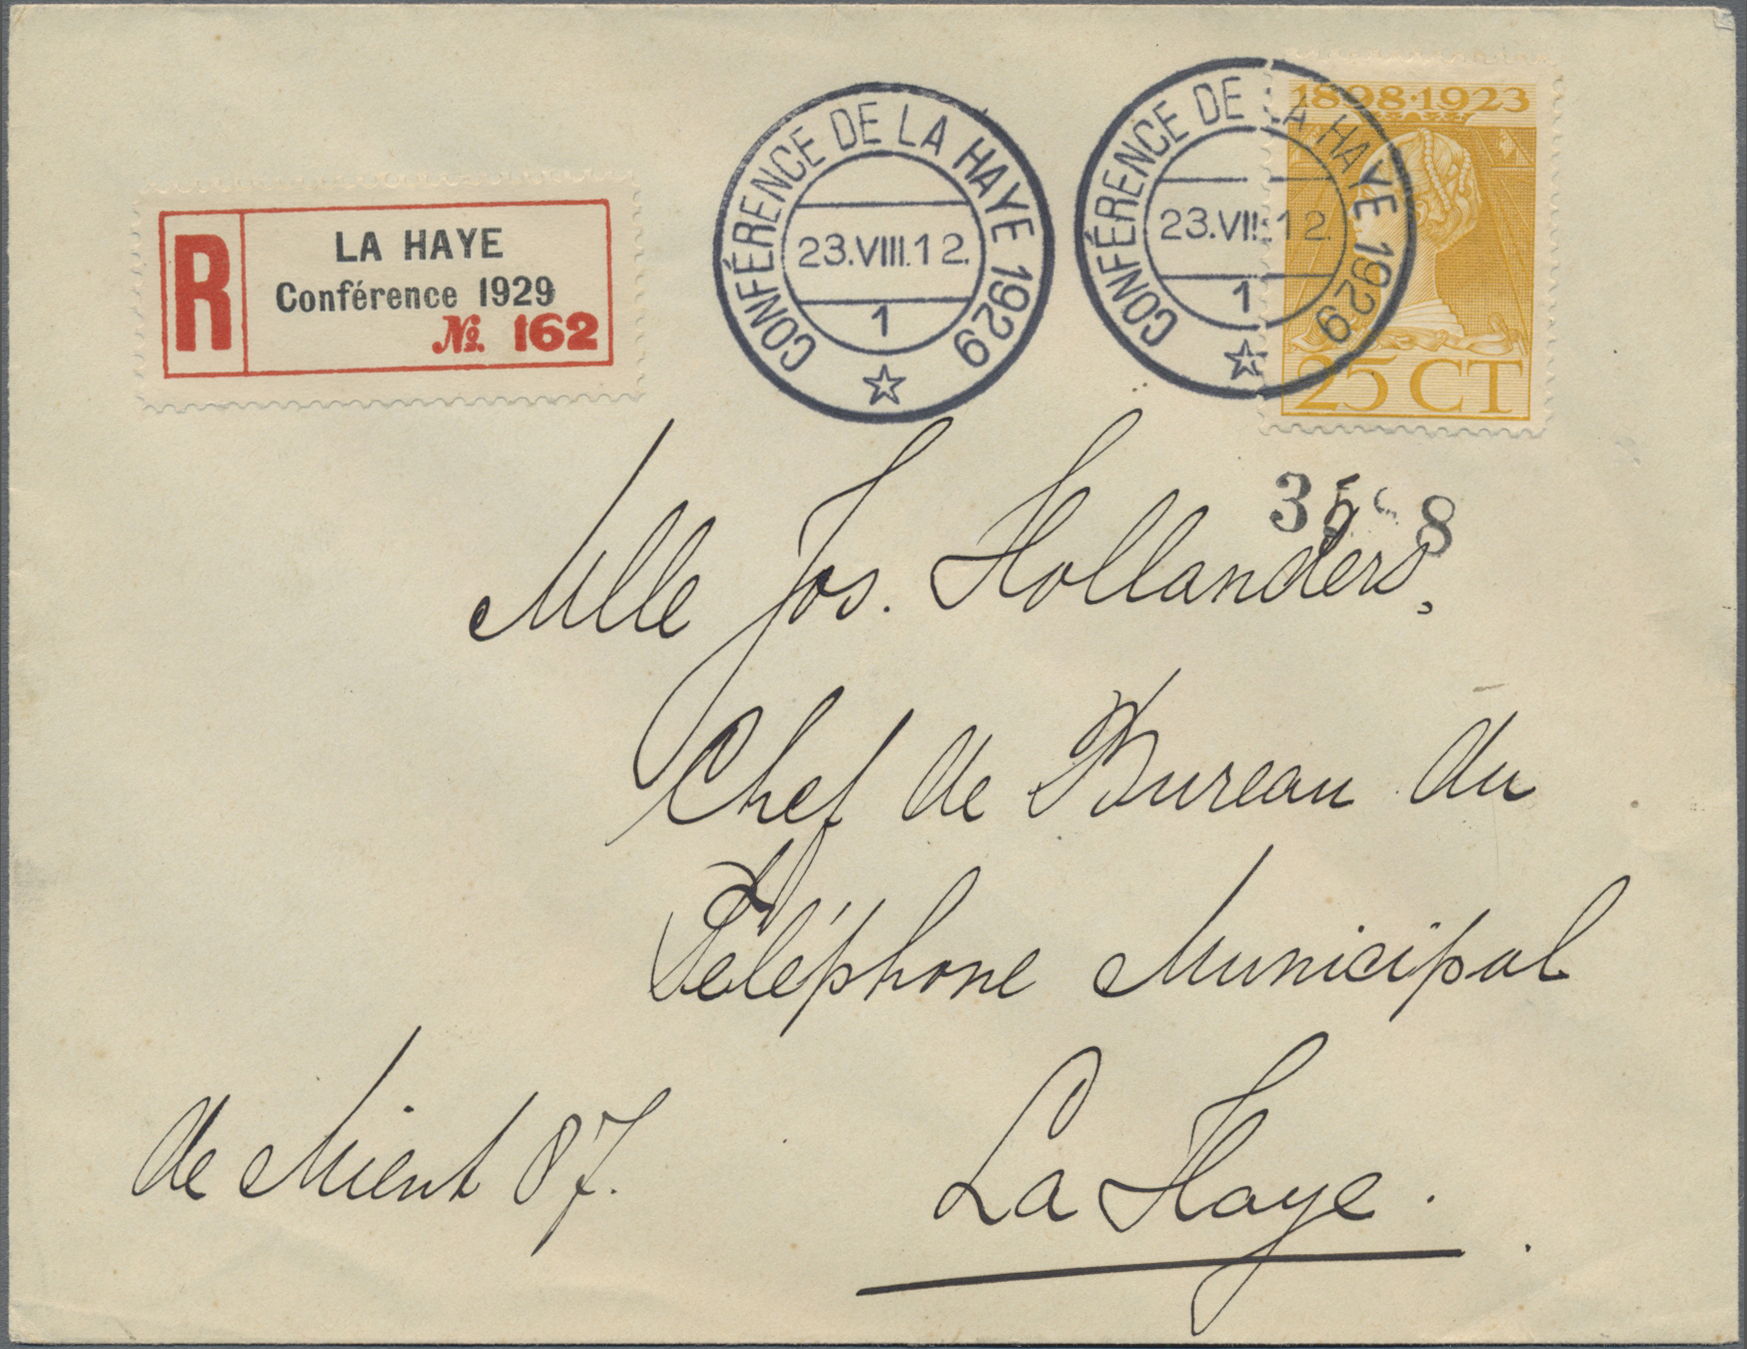 R
LA HAYE
Conférence 1929
No. 162
CONFÉRENCE DE LA HAYE 1929
23.VIII.12.
1
CONFÉRENCE DE LA HAYE 1929
23.VIII.12.
1
1898·1923
25 CT
Mlle Jos. Hollanders,
Chef de Bureau du
Téléphone Municipal
de Mient 87.
La Haye.